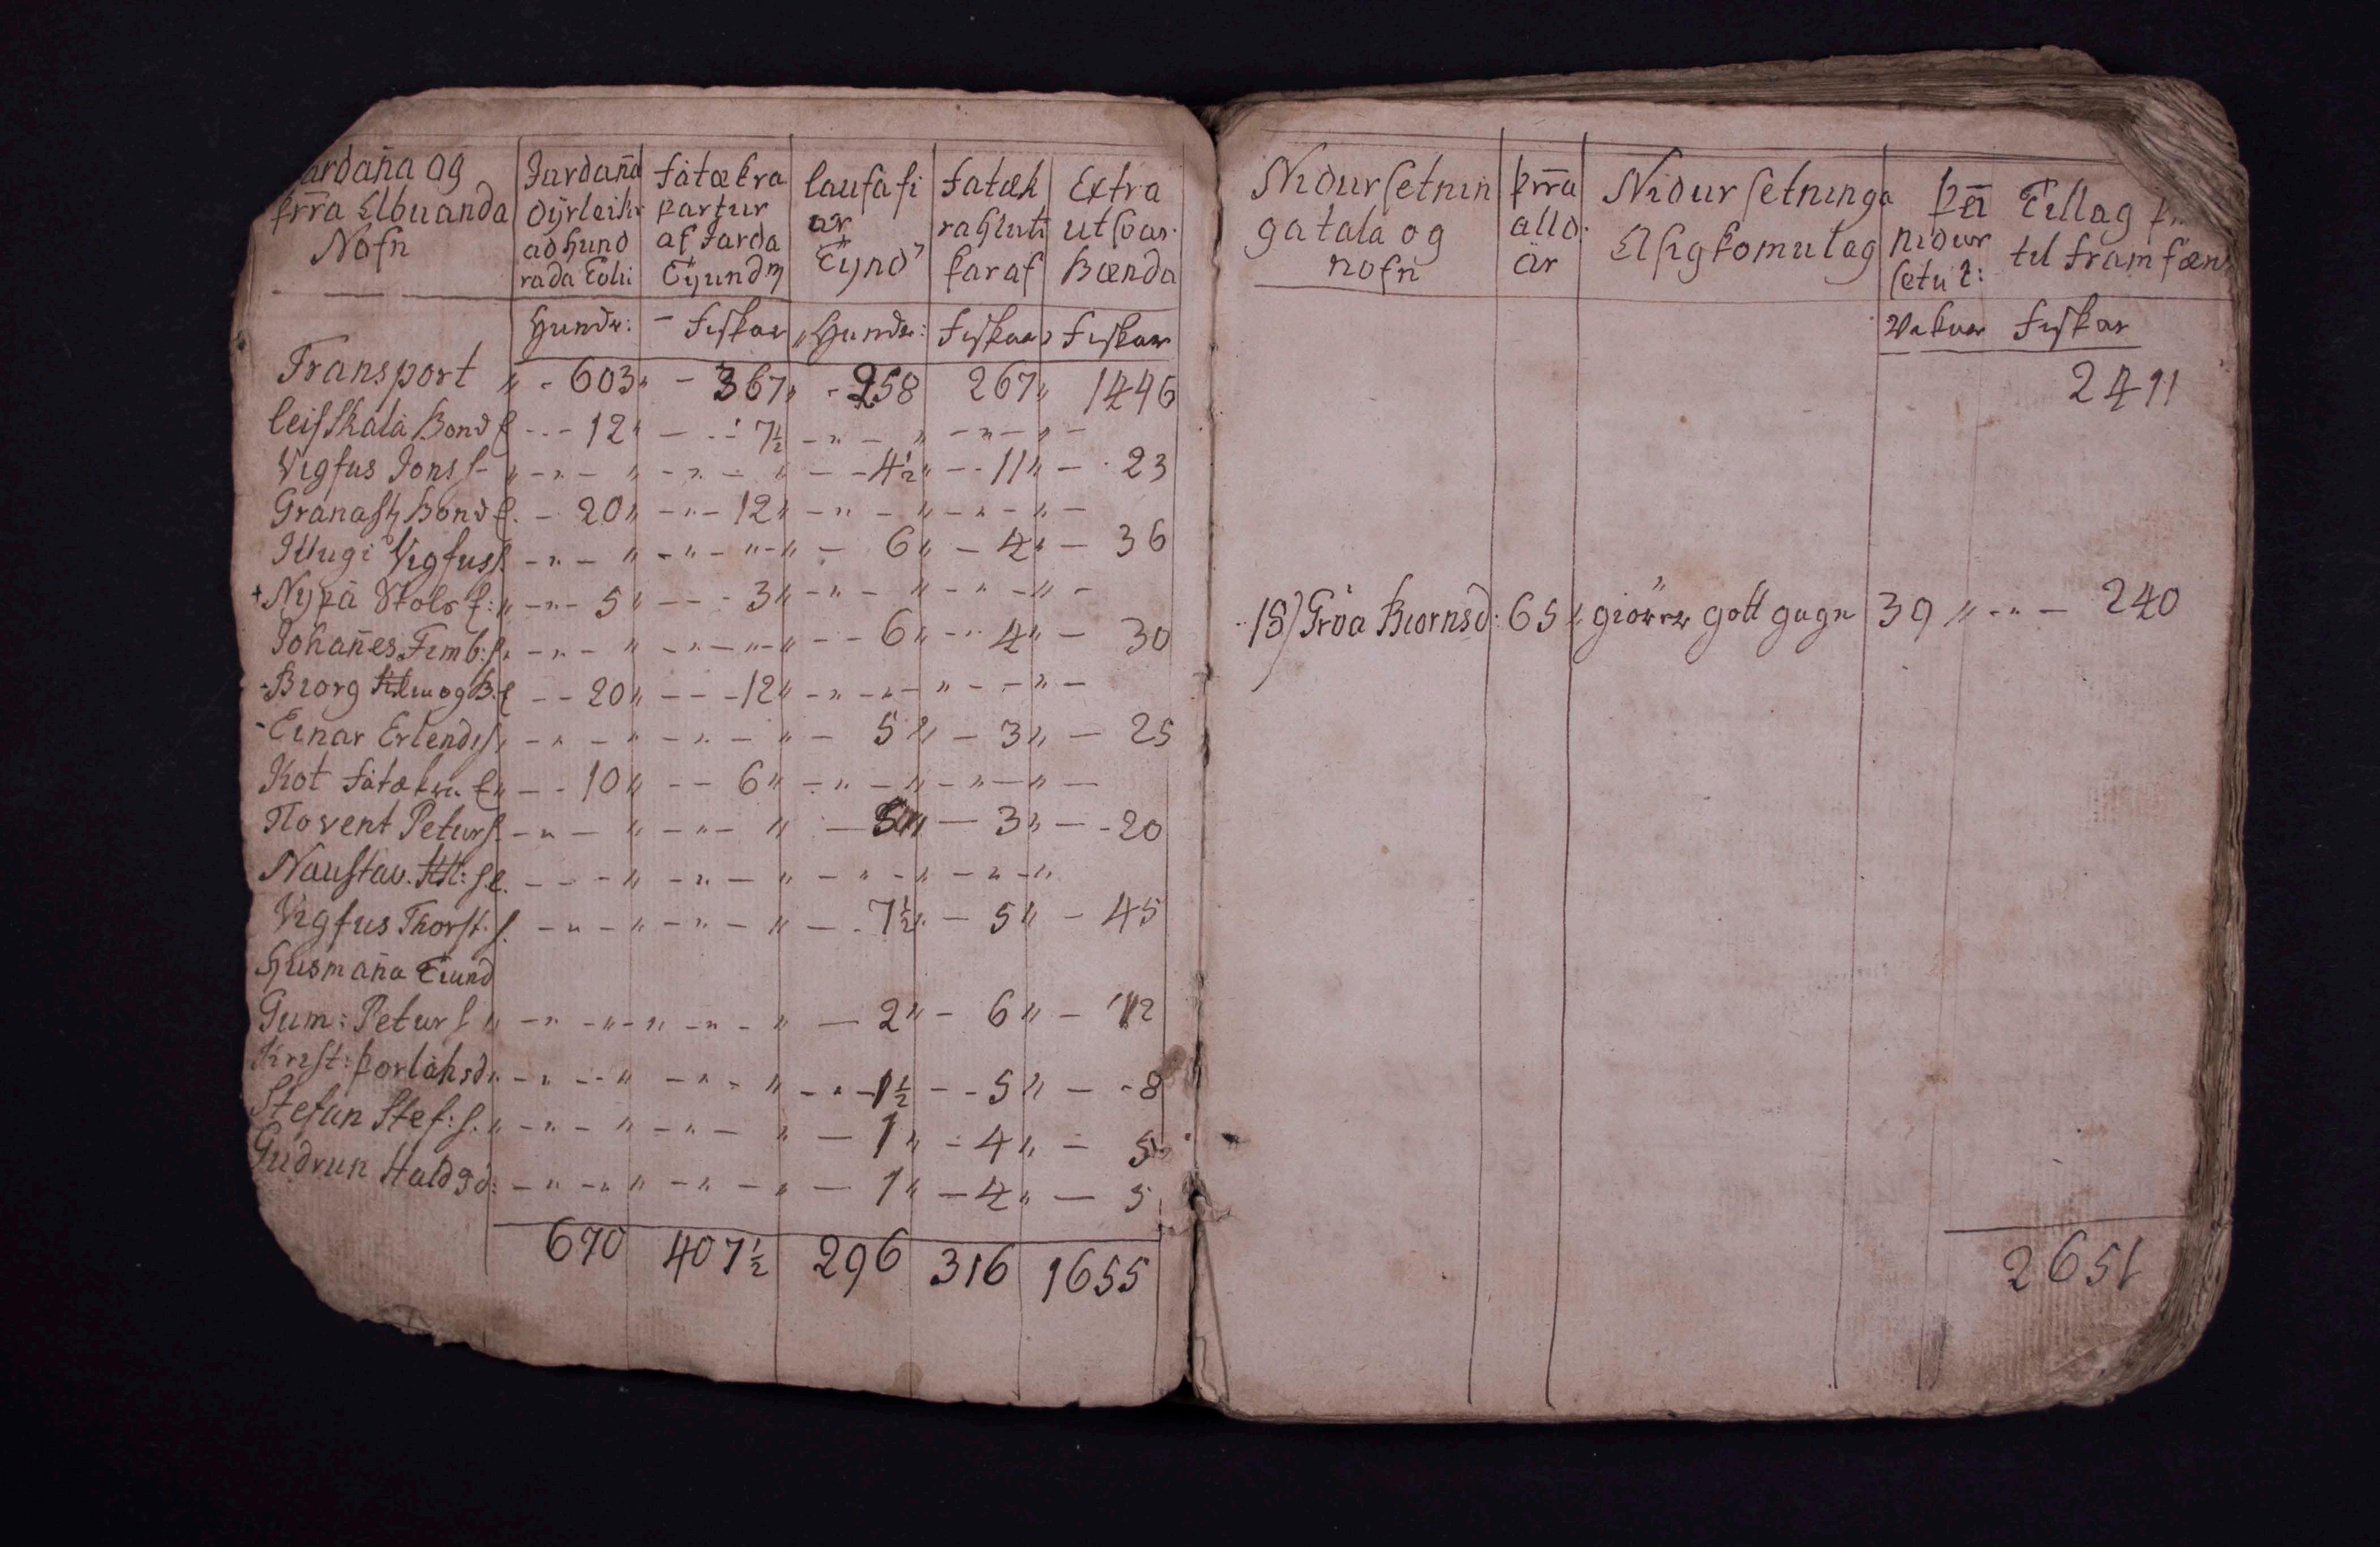 Jardan̄a og
þrr̄a Abuanda
Nofn
Jardan̄a
dyrleiki
ad hund
rada Tolu
fátækra
partur
af Jarda
Tyund
lausafi
ar
Tynd
fatæk
rahluti
þaraf
Extra
utsvar
Bænda
Hundr: - fiskar „ Hundr: fiskar fiskar
Transport „ - 603 „ - 367 „ - 258 267 „ 1446
leifsstada Bond - - 12 „ - - 7½ - „ - „ - „ - „ -
Vigfus Jons s - „ - „ - „ - „ - „ - - 4½ „ - - 11 „ - 23
Granast Bond - 20 „ - „ - 12 „ - „ - „ - „ - „ -
Illugi Vigfuss - „ - „ - „ - „ - „ - 6 „ - 4 „ - 36
+ Nypá „ - „ - 5 „ - - 3 „ - „ - „ - „ - „ -
Johan̄es Finnb: s. - „ - „ - „ - „ - „ - - 6 „ - - 4 „ - 30
- Biorg - - 20 „ - - - 12 „ - „ - „ - „ - - „ -
- Einar Erlends s - „ - „ - „ - „ - 5 „ - 3 „ - 25
Kot fátækra „ - - 10 „ - - 6 „ - „ - „ - „ - „ -
Flovent Peturs. - „ - „ - „ - „ - 5 „ - 3 „ - - 20
Naustav. - - - „ - „ - „ - „ - „ - „ - „
Vigfus Thorst. s. - „ - „ - „ - „ - - 7½ „ - 5 „ - 45
Husman̄a Tiund
Gum: Petur s „ - „ - „ - „ - „ - „ - 2 „ - 6 „ - 12
Krist: þorláksd „ - „ - - „ - „ - „ - „ - 1½ - - 5 „ - - 8
Stefan Stef: s. „ - „ - „ - „ - „ - 1 „ - 4 „ - 5
Gudrun Halds d: - „ - „ „ - „ - „ - 1 „ - 4 „ - 5
670 407½ 296 316 1655
Nidursetnin
gatala og
nofn
þrr̄a
alld.
ár
Nidursetninga
Asigkomulag
nidur
setu
Tillag
til framfær
Vikur fiskar
2411
Gróa Biornsd: 65 „ giörer gott gagn 39 „ - „ - 240
2651